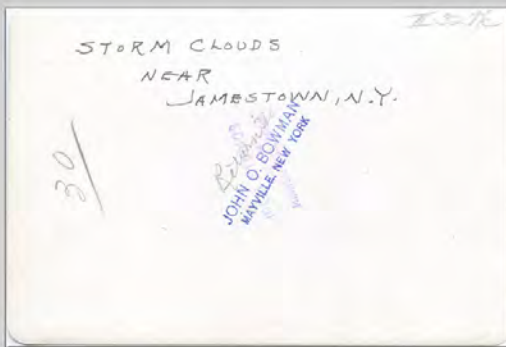 STORM CLOUDS
NEAR
JAMESTOWN, N.Y.
30/
JOHN O. BOWMAN
MAYVILLE, NEW YORK